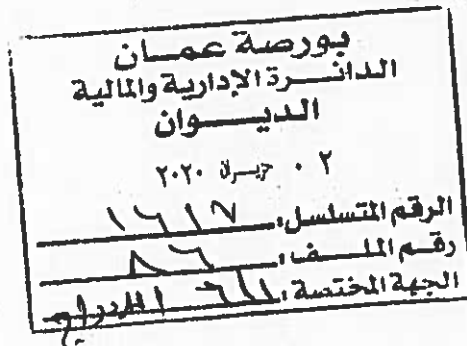 بورصة عمان
الدائرة الإدارية والمالية
الديوان
٠٢ حزيران ٢٠٢٠
الرقم المتسلسل: ١٦١٧
رقم الملف: ٨٦
الجهة المختصة: